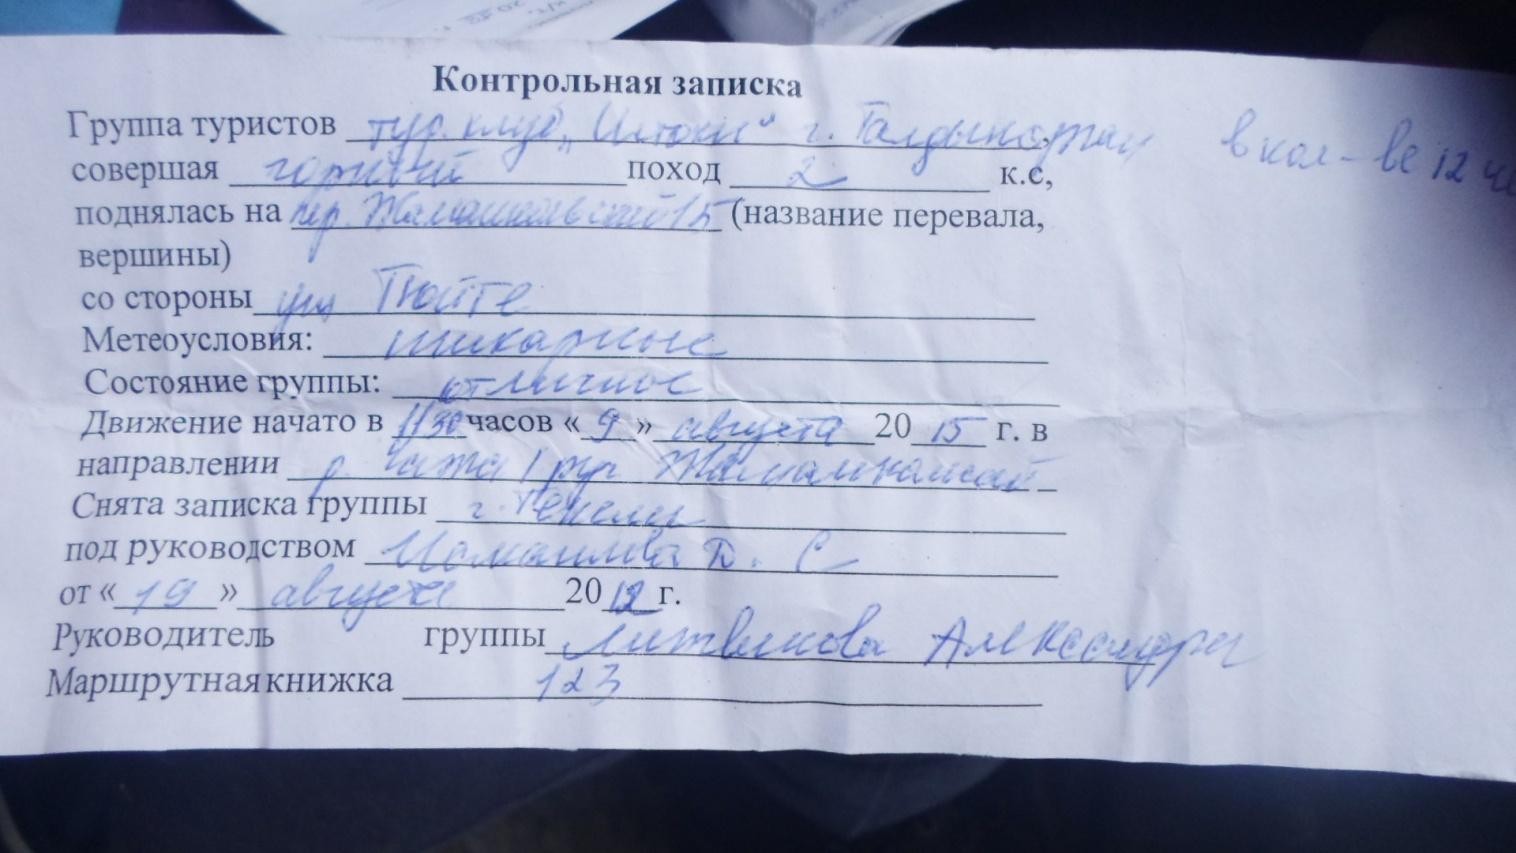 Контрольная записка
Группа туристов тур. клуб „Истоки“ г. Талдыкорган в кол-ве 12 че
совершая горный поход 2 к.с,
поднялась на пер. 1Б (название перевала,
вершины)
со стороны ущ Тюйте
Метеоусловия: шикарные
Состояние группы: отличное
Движение начато в 1130 часов «9» августа 2015 г. в
направлении р. руч.
Снята записка группы г. Текели
под руководством Д. С
от «19» августа 2012 г.
Руководитель группы Литвинова Александра
Маршрутная книжка 123